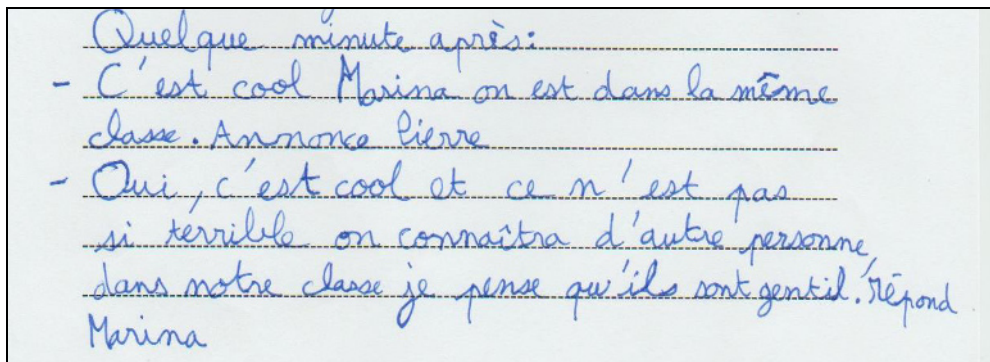 Quelque minute après:
- C'est cool Marina on est dans la même
classe. Annonce Pierre
- Oui, c'est cool et ce n'est pas
si térrible on connaîtra d'autre personne,
dans notre classe je pense qu'ils sont gentil. Répond
Marina